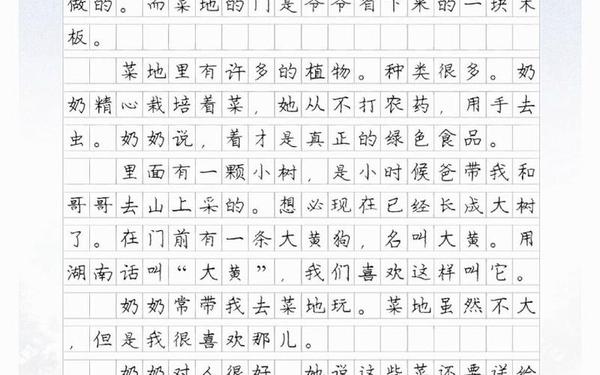 做的。而菜地的门是爷爷省下来的一块木
板。
菜地里有许多的植物。种类很多。奶
奶精心栽培着菜，她从不打农药，用手去
虫。奶奶说，着才是真正的绿色食品。
里面有一颗小树，是小时候爸带我和
哥哥去山上采的。想必现在已经长成大树
了。在门前有一条大黄狗，名叫大黄。用
湖南话叫“大黄”，我们喜欢这样叫它。
奶奶常带我去菜地玩。菜地虽然不大
，但是我很喜欢那儿。
奶奶对人很好，她说这些菜还要送给